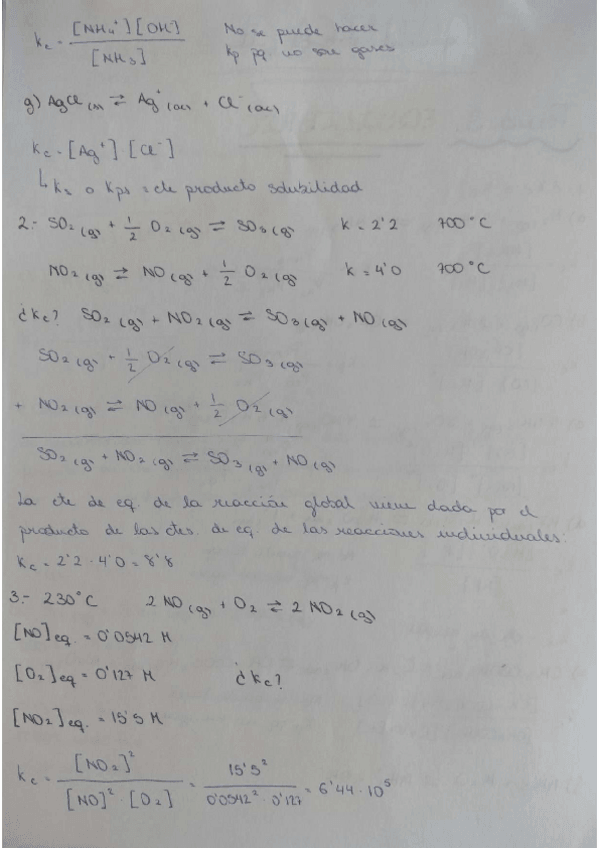 Kc = [NH4⁺][OH⁻] / [NH3]
No se puede hacer
Kp pq. no son gases
g) AgCl (s) ⇌ Ag⁺ (ac) + Cl⁻ (ac)
Kc = [Ag⁺] · [Cl⁻]
↳ Ks o Kps = cte producto solubilidad
2.- SO2 (g) + 1/2 O2 (g) ⇌ SO3 (g) K = 2'2 700°C
NO2 (g) ⇌ NO (g) + 1/2 O2 (g) K = 4'0 700°C
¿Kc? SO2 (g) + NO2 (g) ⇌ SO3 (g) + NO (g)
SO2 (g) + 1/2 O2 (g) ⇌ SO3 (g)
+ NO2 (g) ⇌ NO (g) + 1/2 O2 (g)
SO2 (g) + NO2 (g) ⇌ SO3 (g) + NO (g)
La cte de eq. de la reacción global viene dada por el
producto de las ctes. de eq. de las reacciones individuales:
Kc = 2'2 · 4'0 = 8'8
3.- 230°C 2 NO (g) + O2 ⇌ 2 NO2 (g)
[NO]eq = 0'0542 M
[O2]eq = 0'127 M ¿Kc?
[NO2]eq. = 15'5 M
Kc = [NO2]² / [NO]² · [O2] = 15'5² / 0'0542² · 0'127 = 6'44 · 10⁵